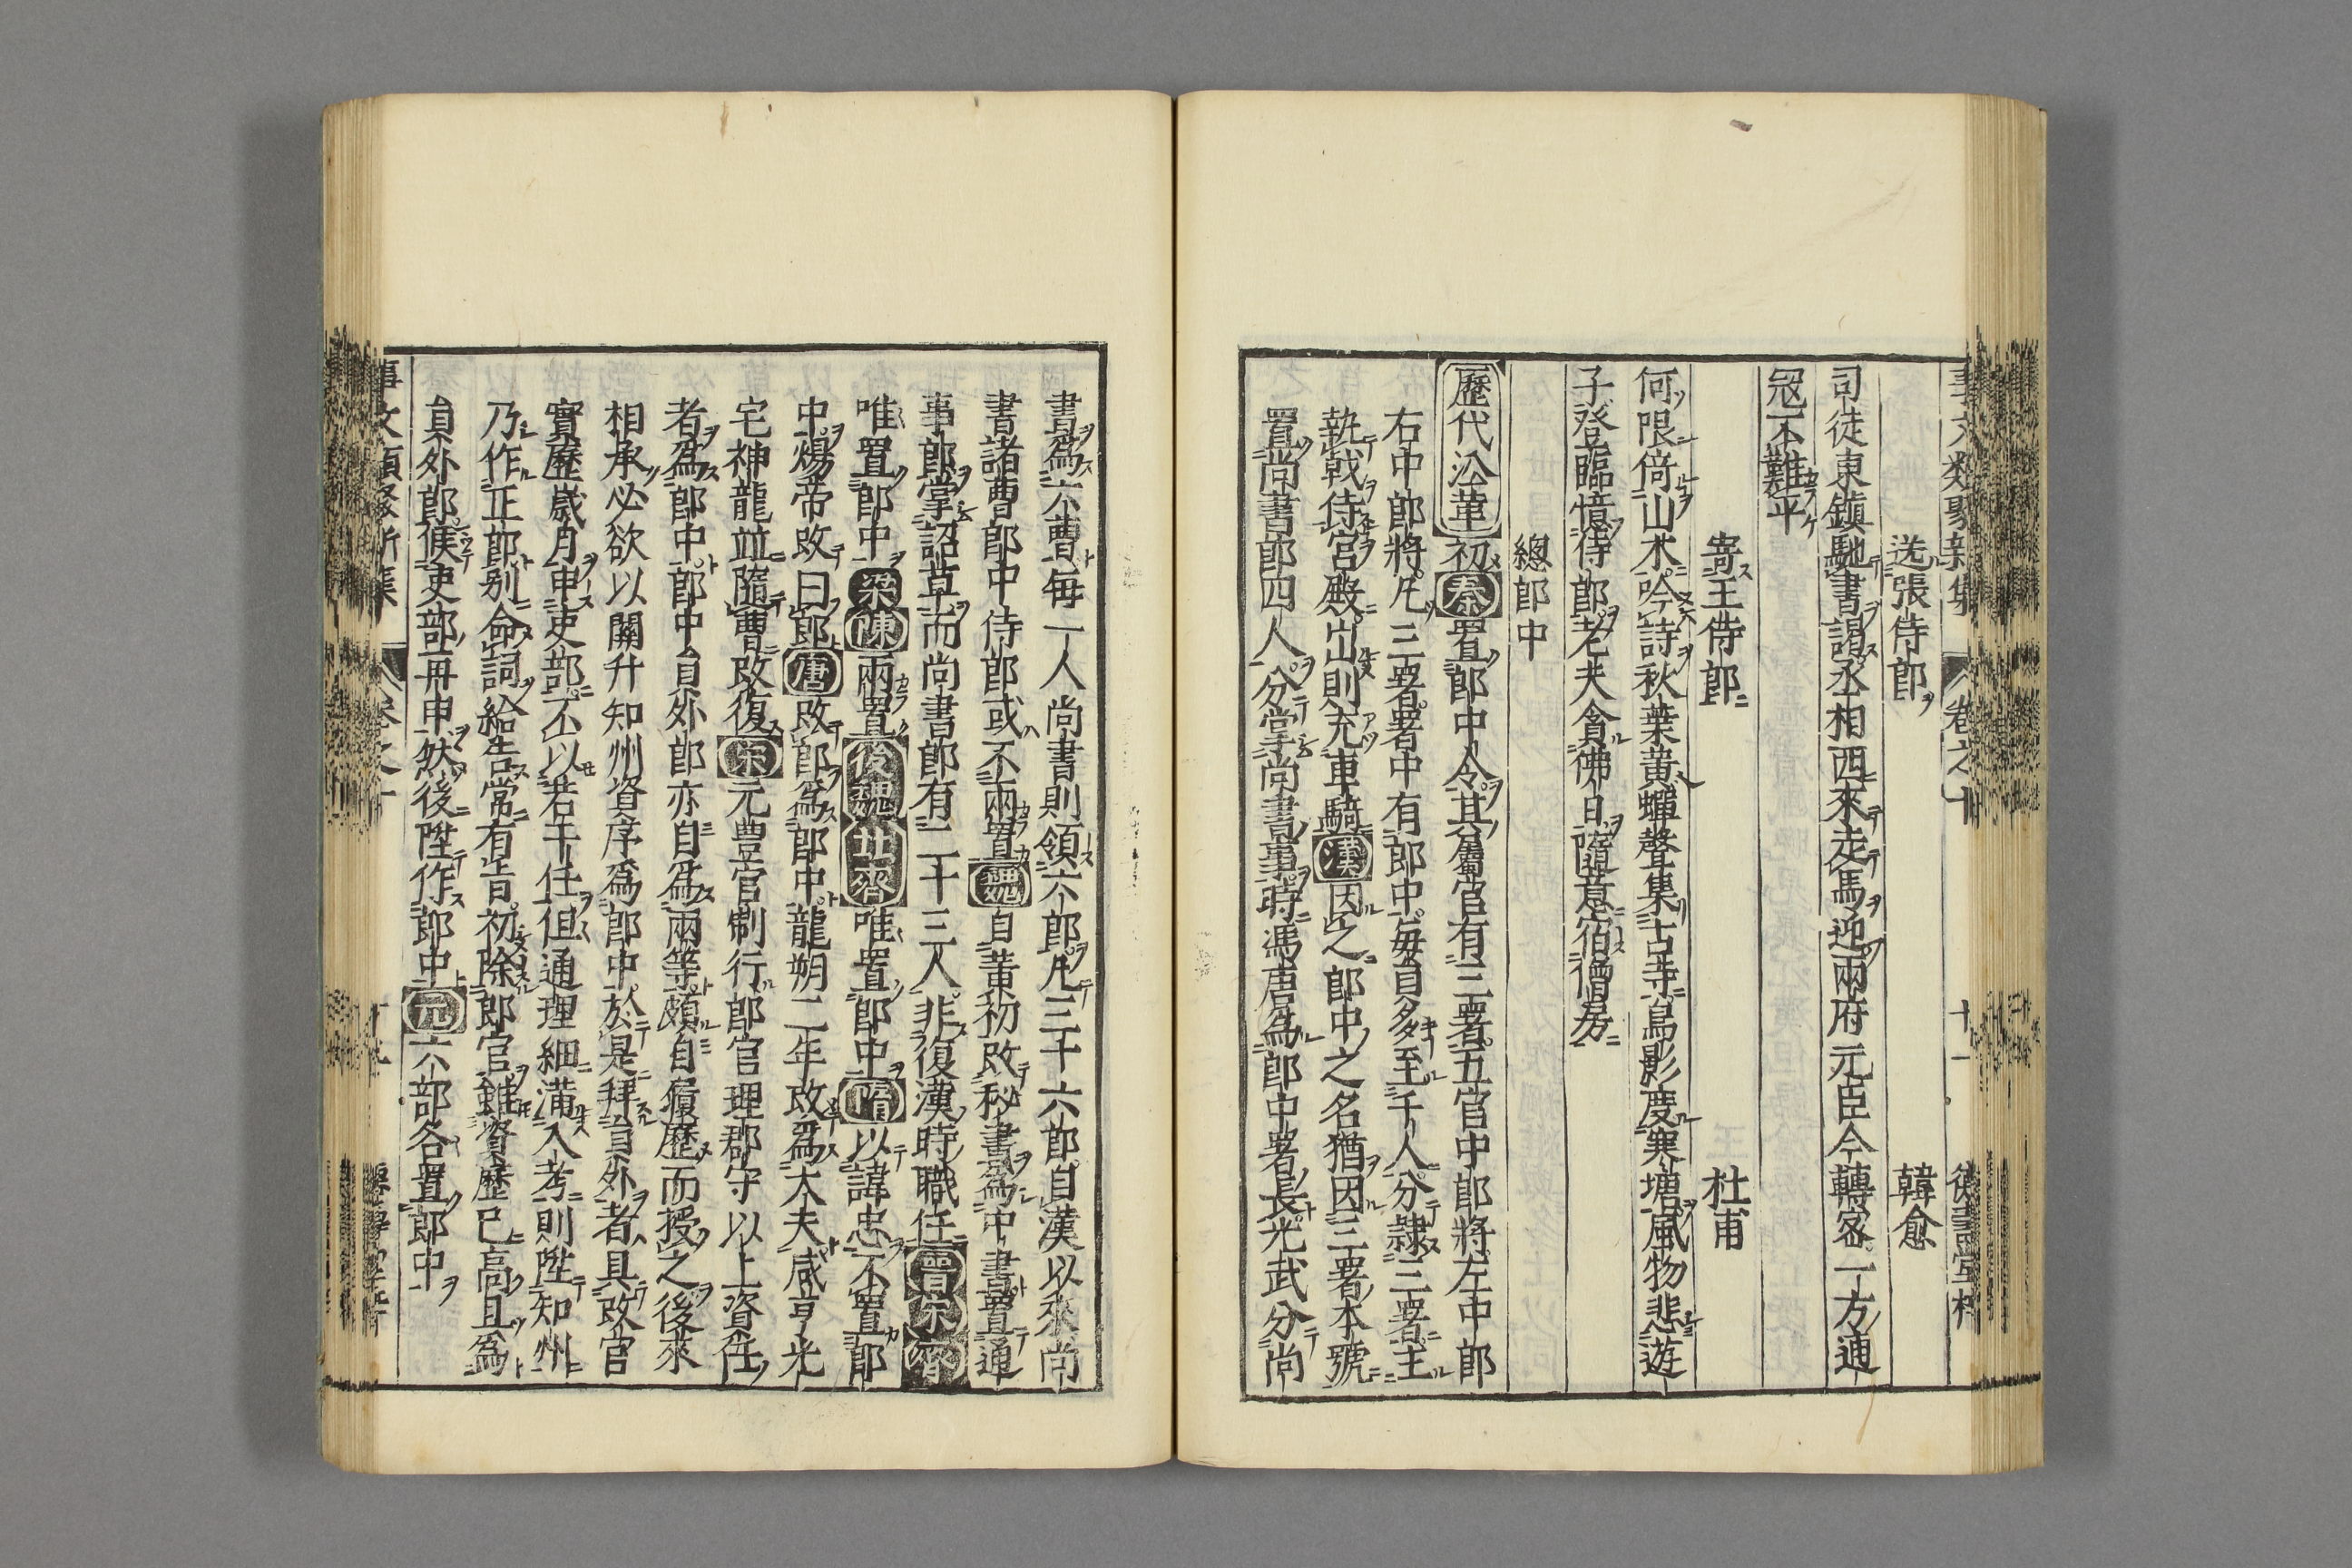 事文類聚新集 卷之十
送張侍郎 韓愈
司徒東鎮馳書謁丞相西來走馬迎兩府元臣今轉密一方逋
冦不難平
寄王侍郎 杜甫
何限倚山木吟詩秋葉黄蟬聲集古寺鳥影度寒塘風物悲遊
子登臨憶侍郎老夫貪佛日隨意宿僧房
總郎中
歷代㳂革 初秦置郎中令其屬官有三署五官中郎將左中郎
右中郎將凡三署署中有郎中毎員多至千人分隸三署主
執戟侍宮殿出則充車騎漢因之郎中之名猶因三署本號
置尚書郎四人分掌尚書事時馮唐爲郎中署長光武分尚
書爲六曹毎一人尚書則領六郎凡三十六郎自漢以來尚
書諸曹郎中侍郎或不兩置魏自黄初改秘書爲中書置通
事郎掌詔草而尚書郎有二十三人非復漢時職任晉宋齊
唯置郎中梁陳兩置後魏北齊唯置郎中隋以諱忠不置郎
中煬帝改曰郎唐改郎爲郎中龍朔二年改爲大夫咸亨光
宅神龍並隨曹改復宋元豊官制行郎官理郡守以上資任
者爲郎中郎中員外郎亦自爲兩等頗自履歷而授之後來
相承必欲以關升知州資序爲郎中於是拜員外者具改官
實歷歲月申吏部不以若干任但通理細滿入考則陞知州
乃作正郎別命詞給告常有旨初除郎官雖資歷已高且爲
員外郎候吏部再申然後陞作郎中元六部各置郎中
事文類聚新集 卷之十